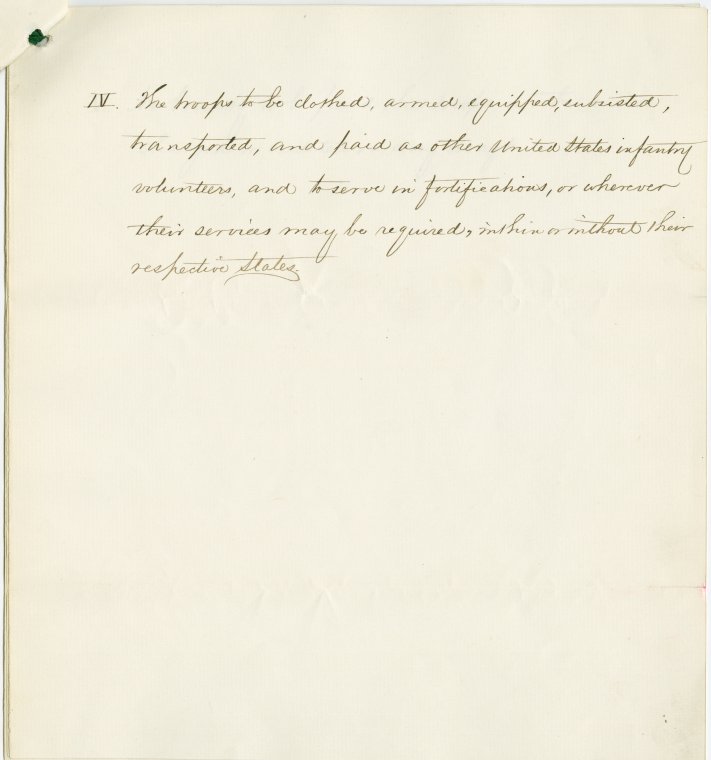 IV. The troops to be clothed, armed, equipped, subsisted,
transported, and paid as other United States infantry
volunteers, and to serve in fortifications, or wherever
their services may be required, within or without their
respective States.